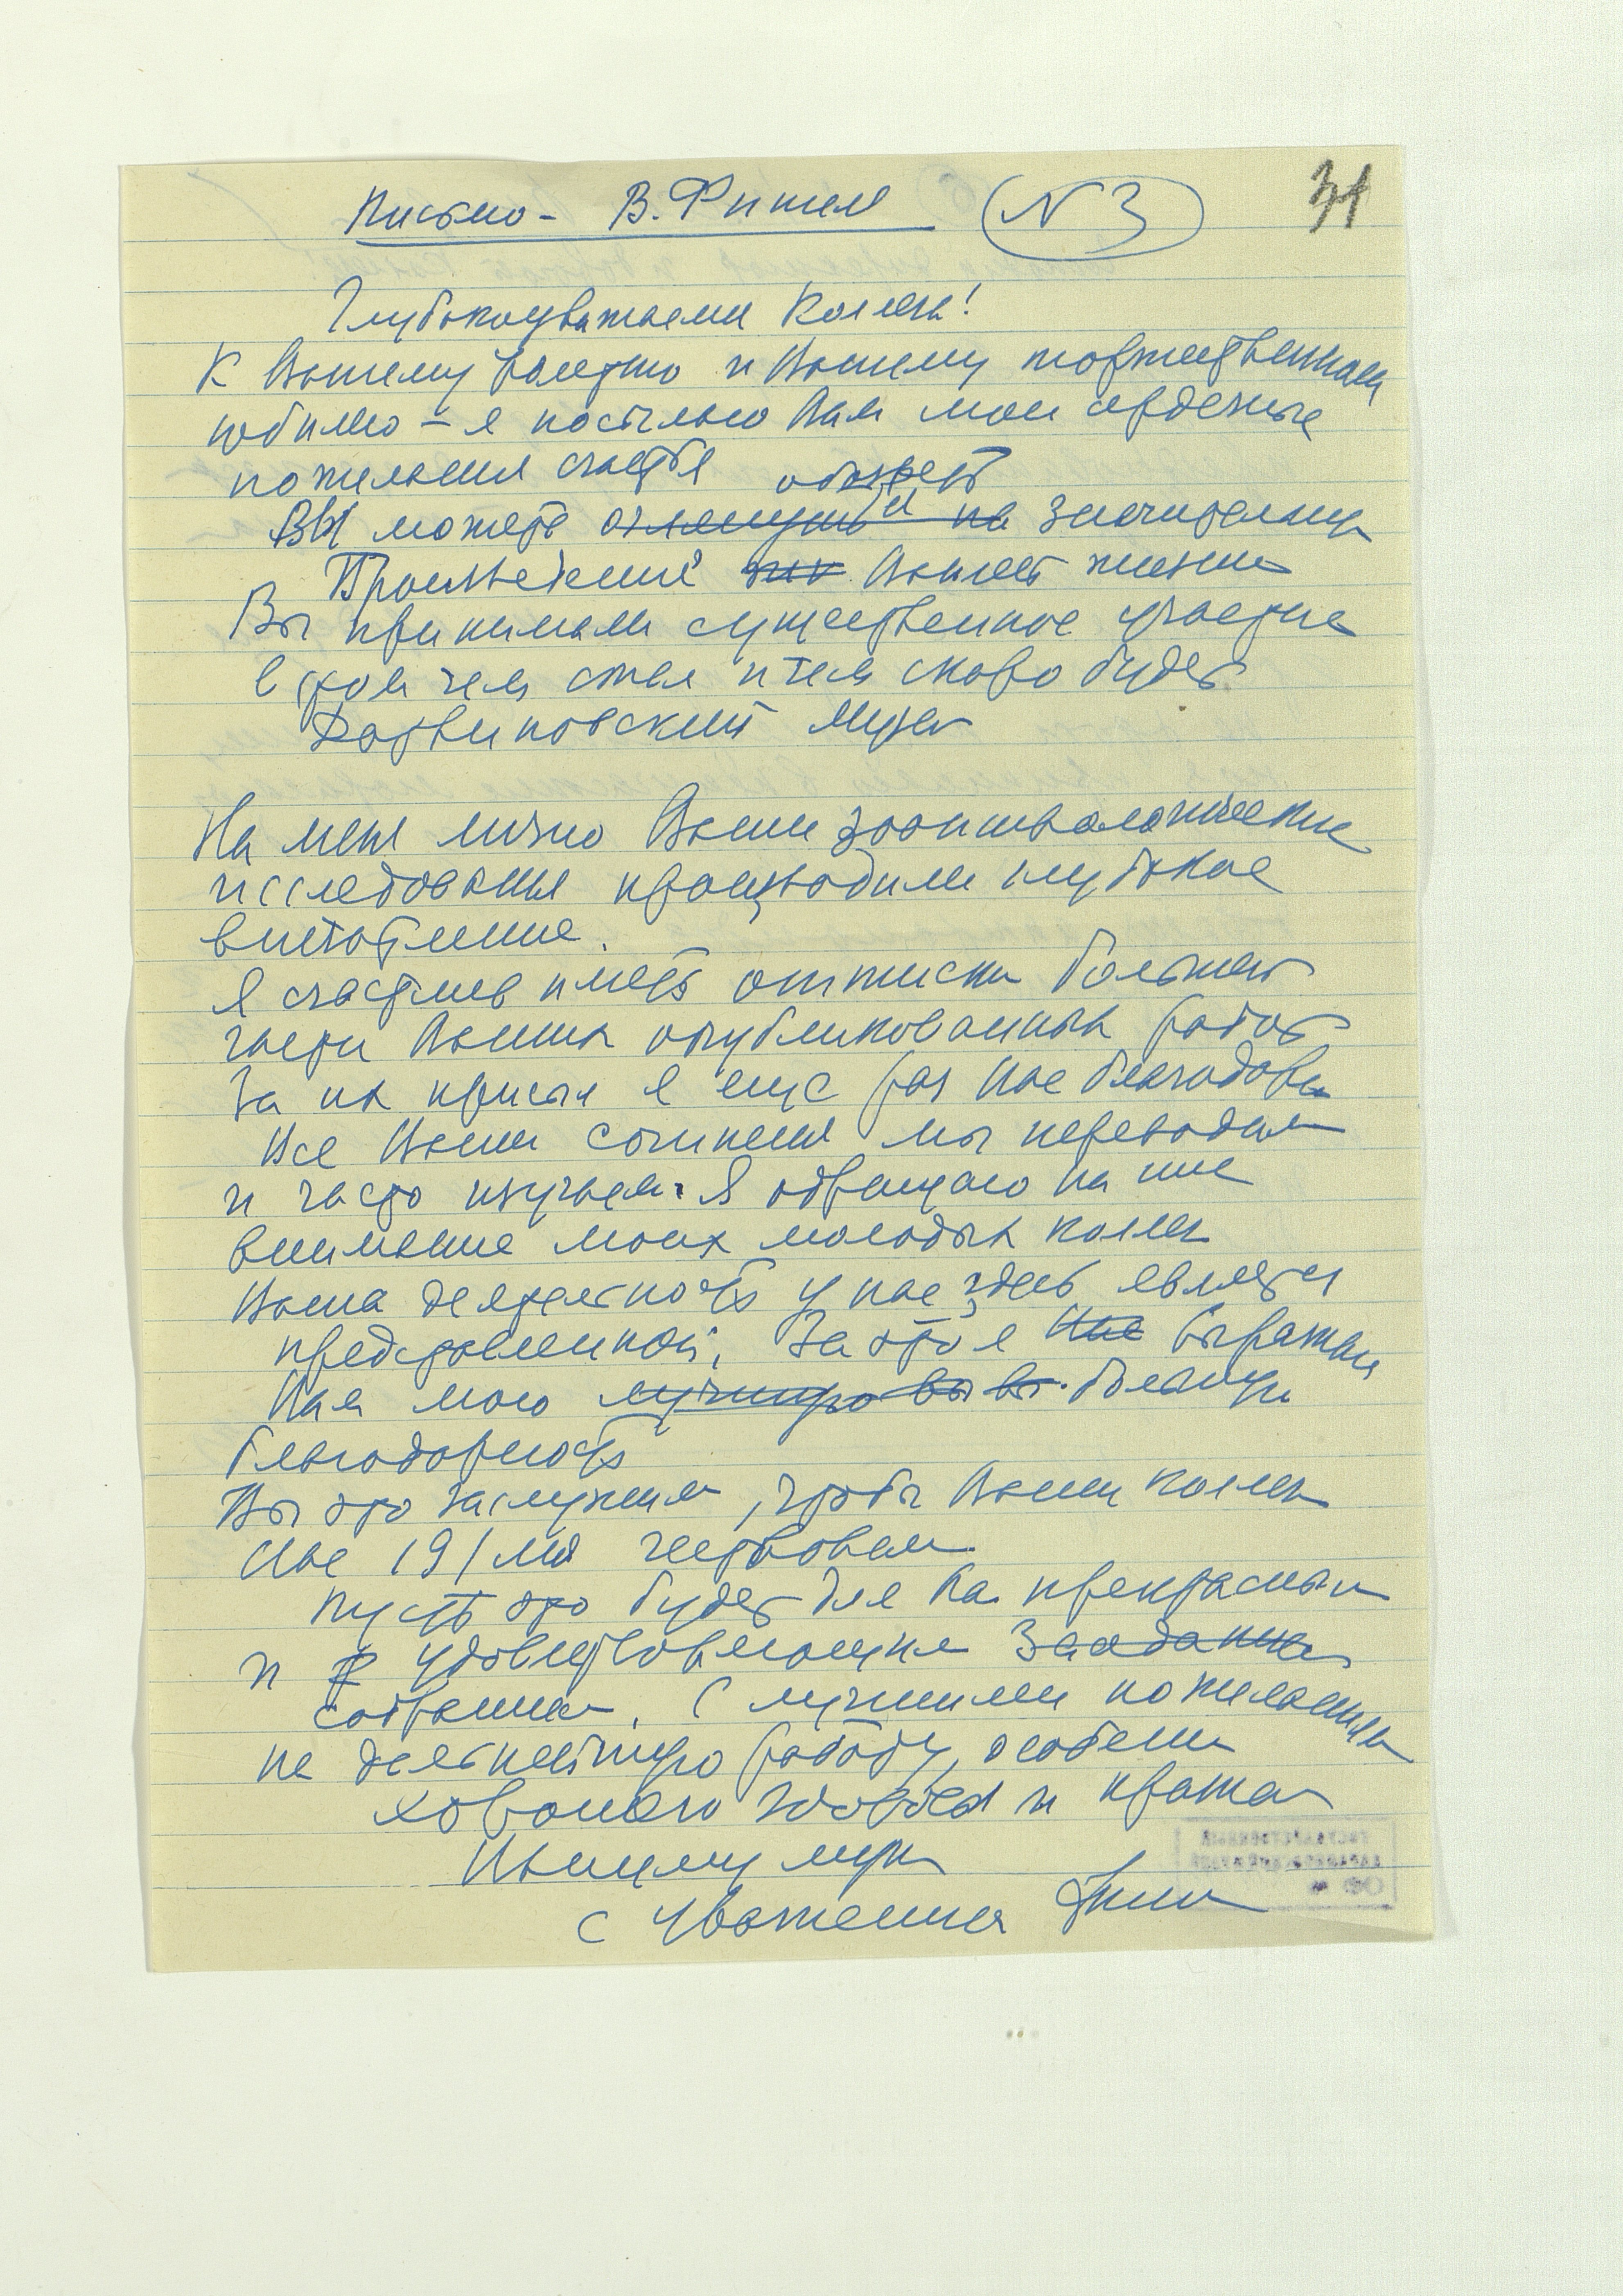 Письмо - В. Фишел
N 3
31
Глубокоуважаемая Коллега!
К Вашему и Вашему торжественному
юбилею – я посылаю Вам мои сердечные
пожелания счастья
Вы можете значительную
Вашей жизни
Вы принимали существенное участие
в том чем стал и чем скоро будет
Дарвиновский Музей
На меня лично Ваши зоопсихологические
исследования производили глубокое
впечатление.
Я счастлив иметь оттиски большей
части Ваших опубликованных работ
За их присыл я еще раз Вас благодарю
Все Ваши сочинения мы переводим
и часто изучаем. Я обращаю на них
внимание моих молодых коллег
Ваша деятельность у нас здесь является
представленной. За это я выражаю
Вам мою большую
благодарность
Вы это заслужили, чтобы Ваши коллеги
Вас 19/ мая чествовали
Пусть это будет для Вас прекрасным
и удовлетворяющим заседанием
собранием. С лучшими пожеланиями
на дальнейшую работу, особенно
хорошего здоровья и
Вашему
с уважением